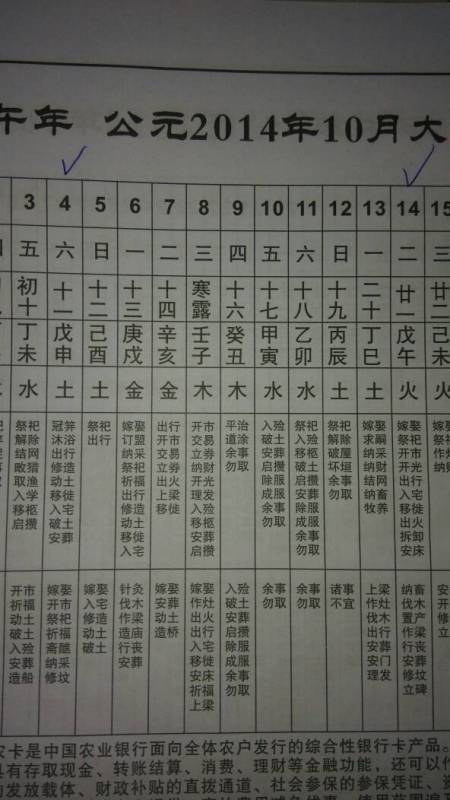 午年 公元2014年10月大
3 4 5 6 7 8 9 10 11 12 13 14 15
五 六 日 一 二 三 四 五 六 日 一 二 三
初十 十一 十二 十三 十四 寒露 十六 十七 十八 十九 二十 廿一 廿二
丁未 戊申 己酉 庚戌 辛亥 壬子 癸丑 甲寅 乙卯 丙辰 丁巳 戊午 己未
水 土 土 金 金 木 木 水 水 土 土 火 火
祭祀 解除 结网 畋猎 取渔 入学 移柩 启攒
冠笄 沐浴 出行 修造 动土 移徙 入宅 破土 安葬
祭祀 出行
嫁娶 订盟 纳采 祭祀 祈福 出行 修造 动土 移徙 入宅
出行 开市 交易 立券 出火 上梁 移徙
开市 交易 立券 纳财 开光 理发 入殓 移柩 安葬 启攒
平治 道涂 余事 勿取
入殓 破土 安葬 启攒 除服 成服 余事 勿取
祭祀 入殓 移柩 破土 启攒 安葬 除服 成服 余事 勿取
祭祀 解除 破屋 坏垣 余事 勿取
嫁娶 求嗣 纳采 纳财 结网 纳畜 牧养
嫁娶 祭祀 开市 开光 出行 移徙 入宅 出火 拆卸 安床
开市 祈福 动土 破土 入殓 安葬 造船
嫁娶 开市 祭祀 祈福 斋醮 纳采 修坟
嫁娶 入宅 修造 动土 破土
针灸 伐木 作梁 造庙 行丧 安葬
嫁娶 安葬 动土 造桥
嫁娶 作灶 出火 出行 入宅 移徙 安床 祈福 上梁
入殓 破土 安葬 启攒 除服 成服 余事 勿取
余事 勿取
余事 勿取
诸事 不宜
上梁 作灶 伐木 出行 安葬 安门
纳畜 伐木 置产 作梁 行丧 安葬 修坟 立碑
农卡是中国农业银行面向全体农户发行的综合性银行卡产品。
具有存取现金、转账结算、消费、理财等金融功能，还可以作
的发放载体、财政补贴的直拨通道、社会参保的参保凭证、资